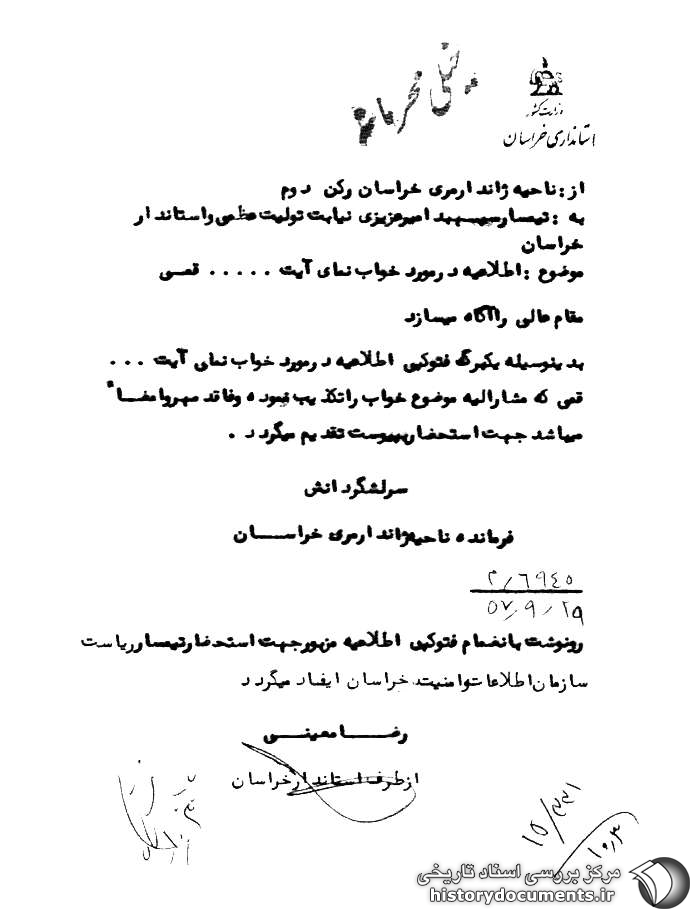 خیلی محرمانه
وزارت کشور
استانداری خراسان
از : ناحیه ژاندارمری خراسان رکن دوم
به : تیمسار سپهبد امیرعزیزی نیابت تولیت عظمی و استاندار
خراسان
موضوع : اطلاعیه در مورد خواب نمای آیت ..... قمی
مقام عالی را آگاه میسازد
بدینوسیله یکبرگ فتوکپی اطلاعیه در مورد خواب نمای آیت ...
قمی که مشارالیه موضوع خواب را تکذیب نموده و فاقد مهر و امضاء
میباشد جهت استحضار بپیوست تقدیم میگردد .
سرلشگر دانش
فرمانده ناحیه ژاندارمری خراسان
۲/۶۹۴۵
۵۷/۹/۲۹
رونوشت بانضمام فتوکپی اطلاعیه مزبور جهت استحضار تیمسار ریاست
سازمان اطلاعات و امنیت خراسان ایفاد میگردد
رضا معینی
از طرف استاندار خراسان
مرکز بررسی اسناد تاریخی
historydocuments.ir